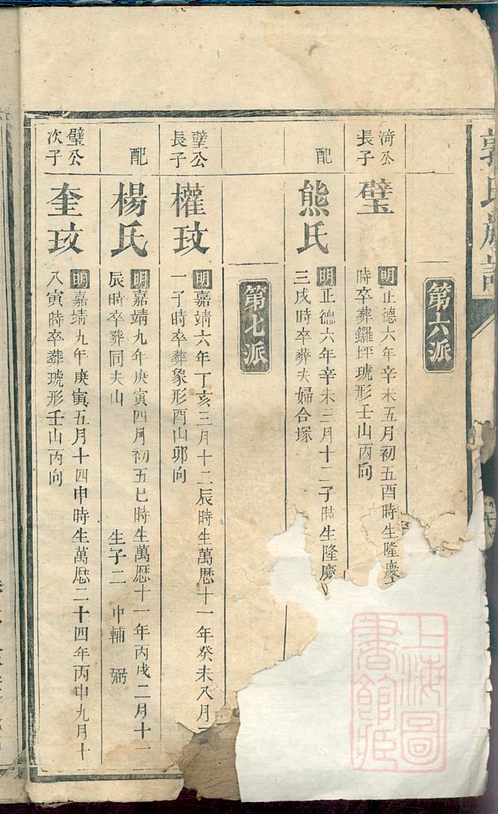 第六派
渏公長子
璧
明正德六年辛未五月初五酉時生隆慶
時卒葬鑼坪琥形壬山丙向
配
熊氏
明正德六年辛未三月十二子時生隆慶
三戌時卒葬夫婦合塚
第七派
璧公長子
權玟
明嘉靖六年丁亥三月十二辰時生萬曆十一年癸未八月二
一子時卒葬象形酉山卯向
配
楊氏
明嘉靖九年庚寅四月初五巳時生萬曆十一年丙戌二月十一
辰時卒葬同夫山 生子二 中輔 弼
璧公次子
奎玟
明嘉靖九年庚寅五月十四申時生萬曆二十四年丙申九月十
八寅時卒葬琥形壬山丙向
上海圖書館